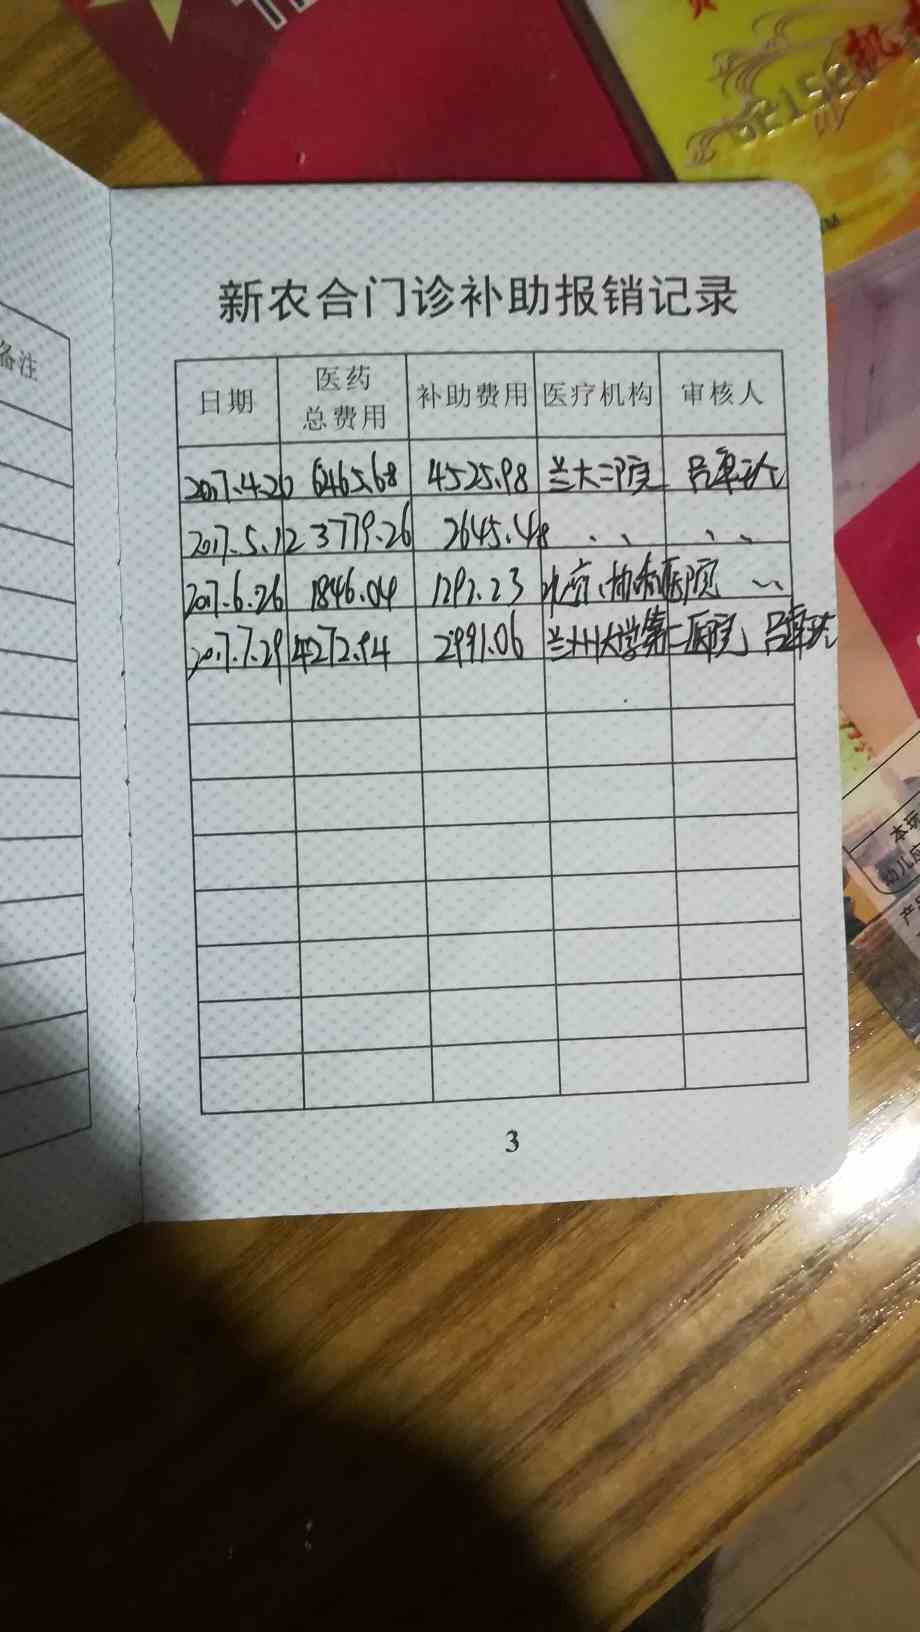 备注
新农合门诊补助报销记录
日期 医药总费用 补助费用 医疗机构 审核人
2017.4.20 6465.68 4525.98 兰大二院
2017.5.12 3779.26 2645.48 、、 、、
2017.6.26 1846.04 1292.23 北京协和医院 、、
2017.7.29 4272.94 2991.06 兰州大学第二医院
3